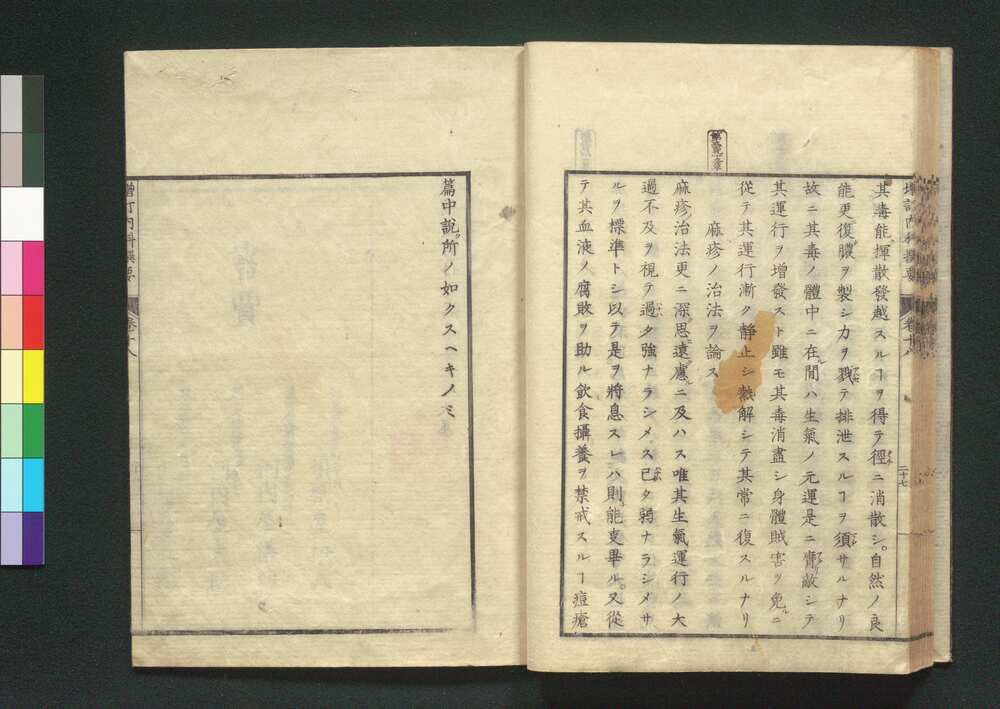 其毒能揮散發越スルヿヲ得テ徑ニ消散シ。自然ノ良
能更ニ復膿ヲ製シ力ヲ戮テ排泄スルヿヲ須サルナリ
故ニ其毒ノ體中ニ在間ハ生氣ノ元運是ニ齊敵シテ
其運行ヲ增發スト雖モ其毒消盡シ身體賊害ヲ免ニ
從テ其運行漸ク靜止シ熱解シテ其常ニ復スルナリ
麻疹ノ治法ヲ論ス
麻疹ノ治法更ニ深思遠慮ニ及ハス唯其生氣運行ノ大
過不及ヲ視テ過タ強ナラシメス已タ弱ナラシメサ
ルヲ標準トシ以テ是ヲ將息スレハ則能吏畢ル。又從
テ其血液ノ腐敗ヲ助ル飲食攝養ヲ禁戒スルヿ痘瘡
二十七
篇中說所ノ如クスヘキノミ
增訂內科撰要
卷十八